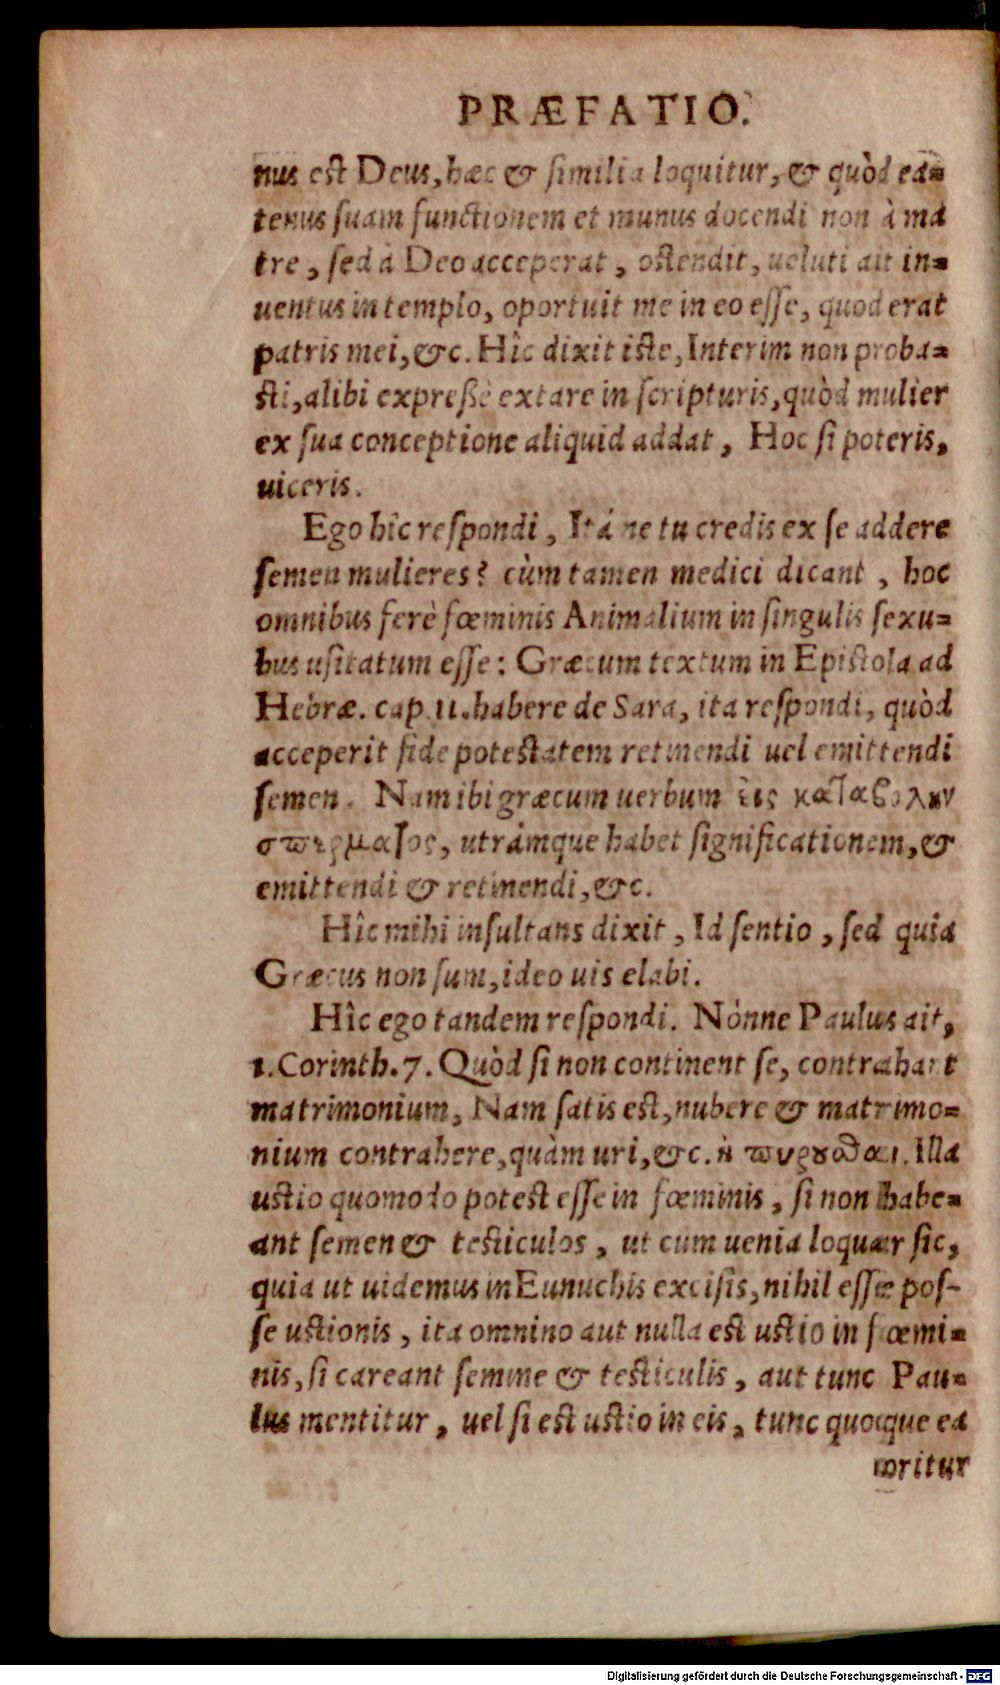 PRÆFATIO.
nus est Deus, hæc & similia loquitur, & quòd ea=
tenus suam functionem et munus docendi non à ma
tre, sed à Deo acceperat, ostendit, ueluti ait in=
uentus in templo, oportuit me in eo esse, quod erat
patris mei, &c. Hîc dixit iste, Interim non proba=
sti, alibi expreßè extare in scripturis, quòd mulier
ex sua conceptione aliquid addat, Hoc si poteris,
uiceris.
Ego hîc respondi, Itá ne tu credis ex se addere
semen mulieres? cùm tamen medici dicant, hoc
omnibus ferè fœminis Animalium in singulis sexu=
bus usitatum esse: Græcum textum in Epistola ad
Hebræ. cap. 11. habere de Sara, ita respondi, quòd
acceperit fide potestatem retinendi uel emittendi
semen. Nam ibi græcum uerbum ἐις καταβολὴν
σπέρματος, utrámque habet significationem, &
emittendi & retinendi, &c.
Hîc mihi insultans dixit, Id sentio, sed quia
Græcus non sum, ideo uis elabi.
Hîc ego tandem respondi. Nònne Paulus ait,
1. Corinth. 7. Quòd si non continent se, contrahant
matrimonium, Nam satis est, nubere & matrimo=
nium contrahere, quàm uri, &c. ἢ πυροῦσθαι. Illa
ustio quomodo potest esse in fœminis, si non habe=
ant semen & testiculos, ut cum uenia loquar sic,
quia ut uidemus in Eunuchis excisis, nihil esse pos-
se ustionis, ita omnino aut nulla est ustio in fœmi=
nis, si careant semine & testiculis, aut tunc Pau=
lus mentitur, uel si est ustio in eis, tunc quoque ea
oritur
Digitalisierung gefördert durch die Deutsche Forschungsgemeinschaft - DFG